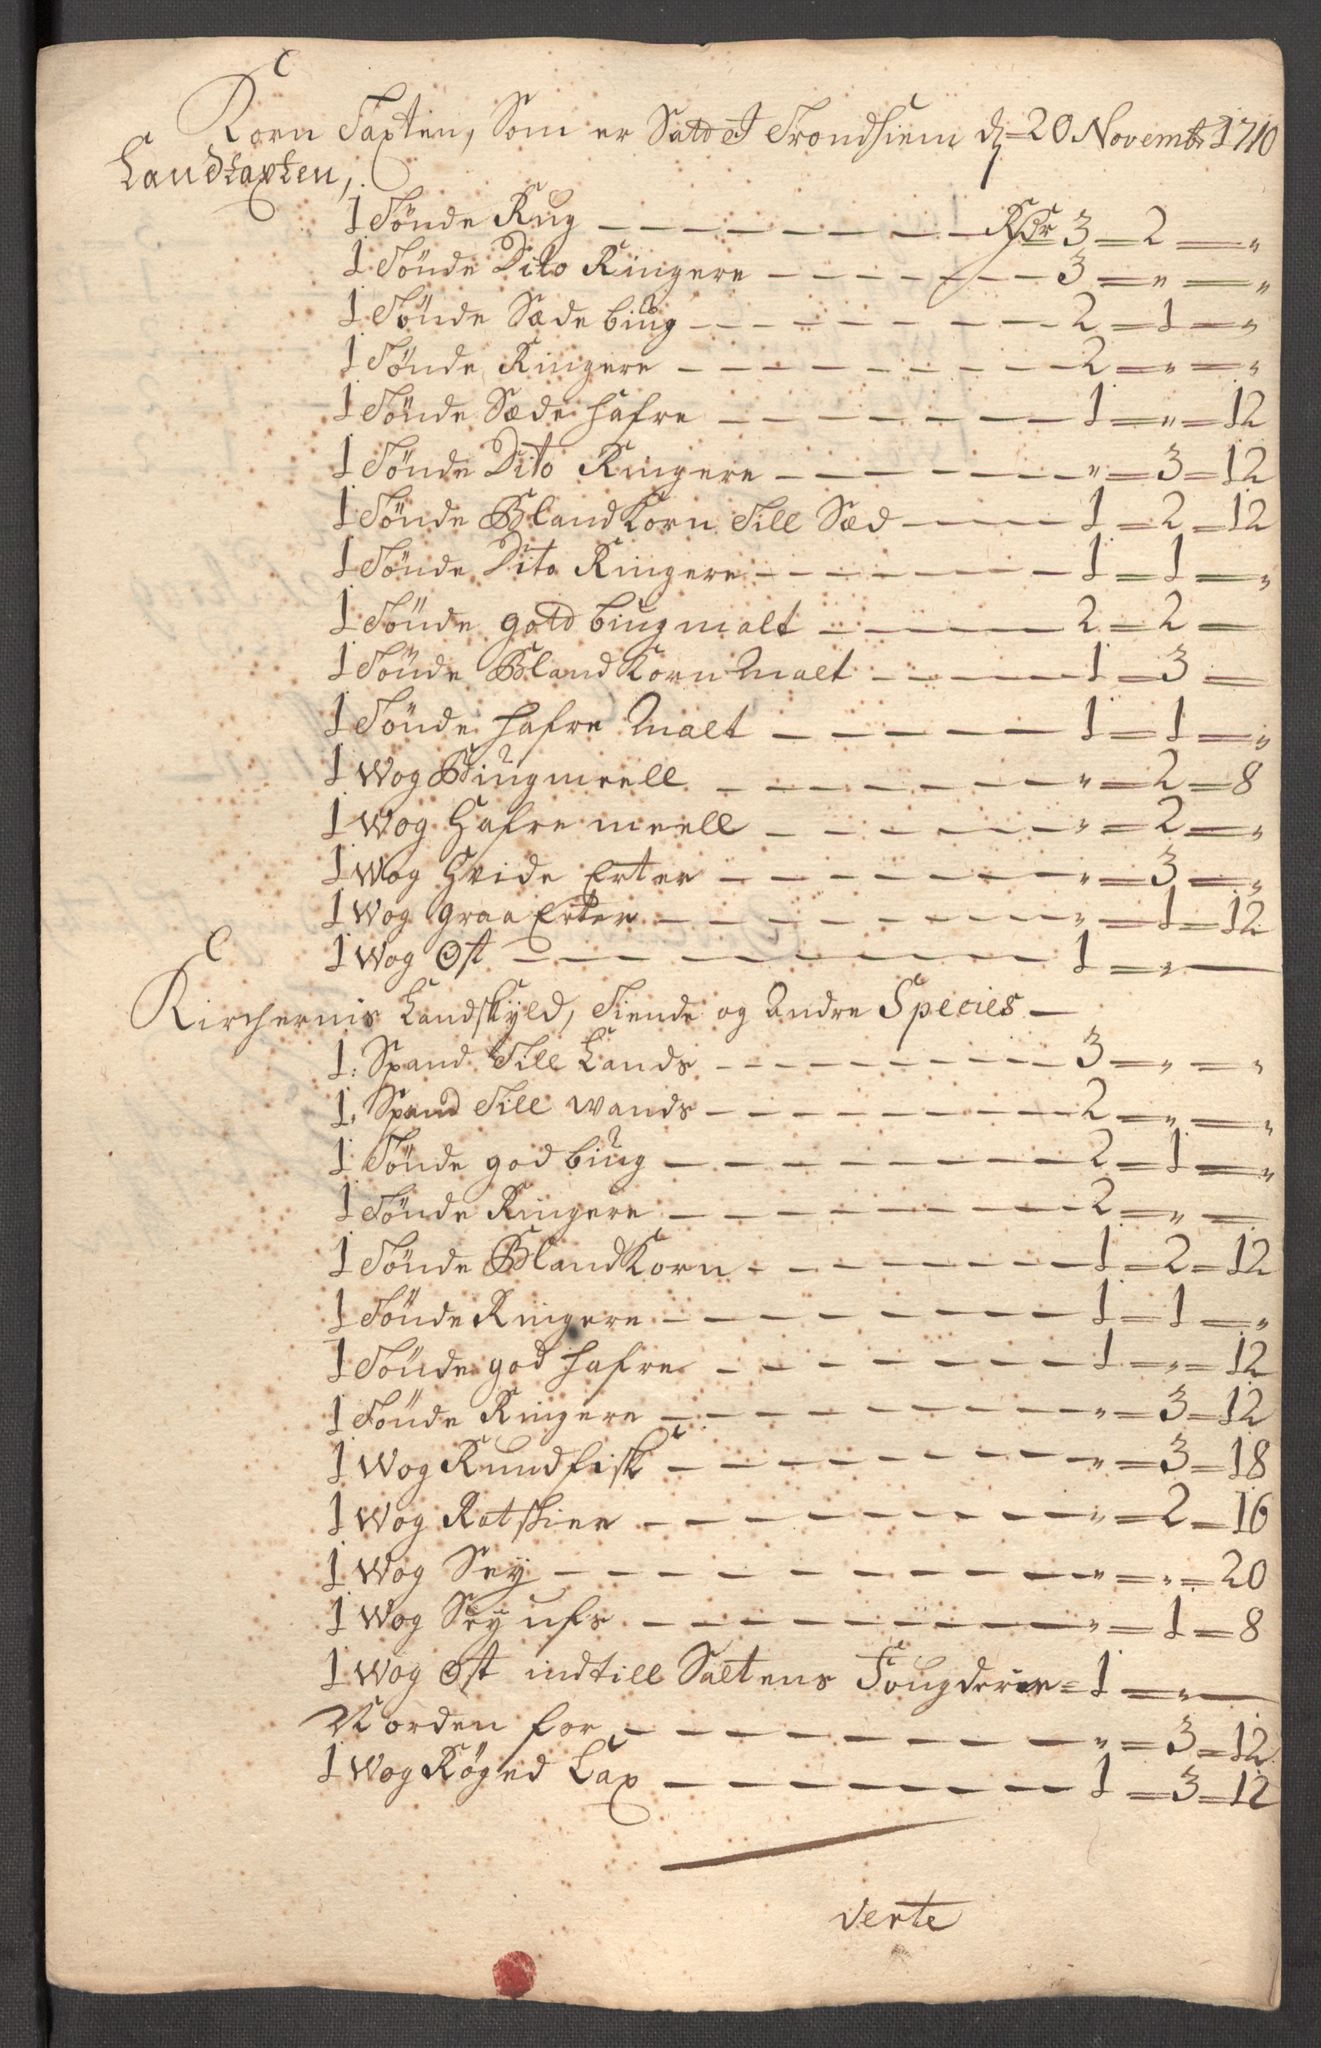 Korn Taxten, Som er Satd I Trondhiem d. 20 Novembr 1710
Landtaxten,
1 Tønde Rug — Rdr 3 = 2 = „
1 Tønde Dito Ringere — 3 = „ = „
1 Tønde Sæde biug — 2 = 1 = „
1 Tønde Ringere — 2 = „ = „
1 Tønde Sæde hafre — 1 = „ = 12
1 Tønde Dito Ringere — „ = 3 = 12
1 Tønde BlandKorn Till Sæd — 1 = 2 = 12
1 Tønde Dito Ringere — 1 = 1 = „
1 Tønde gotd biugmalt — 2 = 2 =
1 Tønde BlandKorn Malt — 1 = 3 =
1 Tønde hafre Malt — 1 = 1 = „
1 Wog Biugmeell — „ = 2 = 8
1 Wog Hafre meell — „ = 2 = „
1 Wog Hvide Erter — „ = 3 = „
1 Wog graa Erter — „ = 1 = 12
1 Wog Ost — 1 = „ —
Kirchernis Landskyld, Tiende og Andre Species —
1: Spand Till Lands — 3 = „ = „
1: Spand Till Wands — 2 = „ = „
1 Tønde god biug — 2 = 1 = „
1 Tønde Ringere — 2 = „ =
1 Tønde BlandKorn — 1 = 2 = 12
1 Tønde Ringere — 1 = 1 = „
1 Tønde god hafre — 1 = „ = 12
1 Tønde Ringere — „ = 3 = 12
1 Wog Rundfisk — „ = 3 = 18
1 Wog Rotskier — „ = 2 = 16
1 Wog Sey — „ = „ = 20
1 Wog Sey ufs — „ = 1 = 8
1 Wog Ost indtill Saltens Fougderie = 1 = „ —
Norden for — „ = 3 = 12
1 Wog Røged Lax — 1 = 3 = 12
Verte